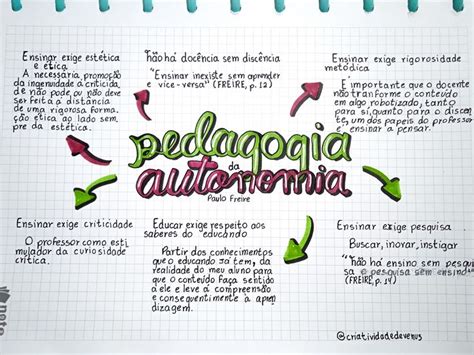 Ensinar exige estética
e ética
A necessária promoção
da ingenuidade à criticida
de não pode ou não deve
ser feita à distância
de uma rigorosa forma.
ção ética ao lado sem
pre da estética.
não há docência sem discência
"Ensinar inexiste sem aprender
e vice-versa" (FREIRE, p. 12)
Ensinar exige rigorosidade
metódica
É importante que o docente
não tranforme o conteúdo
em algo robotizado, tanto
para si, quanto para o discen
te, um dos papeis do professor
é ensinar a pensar.
pedagogia
da
autonomia
Paulo Freire
Ensinar exige criticidade
O professor como esti
mulador da curiosidade
crítica.
Educar exige respeito aos
saberes do "educando
Partir dos conhecimentos
que o educando já tem, da
realidade do meu aluno para
que o conteúdo faça sentido
a ele e leve à compreensão
e consequentimente à apren
dizagem.
Ensinar exige pesquisa
Buscar, inovar, instigar
"não há ensino sem pesqui
sa e pesquisa sem ensino
(FREIRE, p. 14)
@criatividadedevenus
note